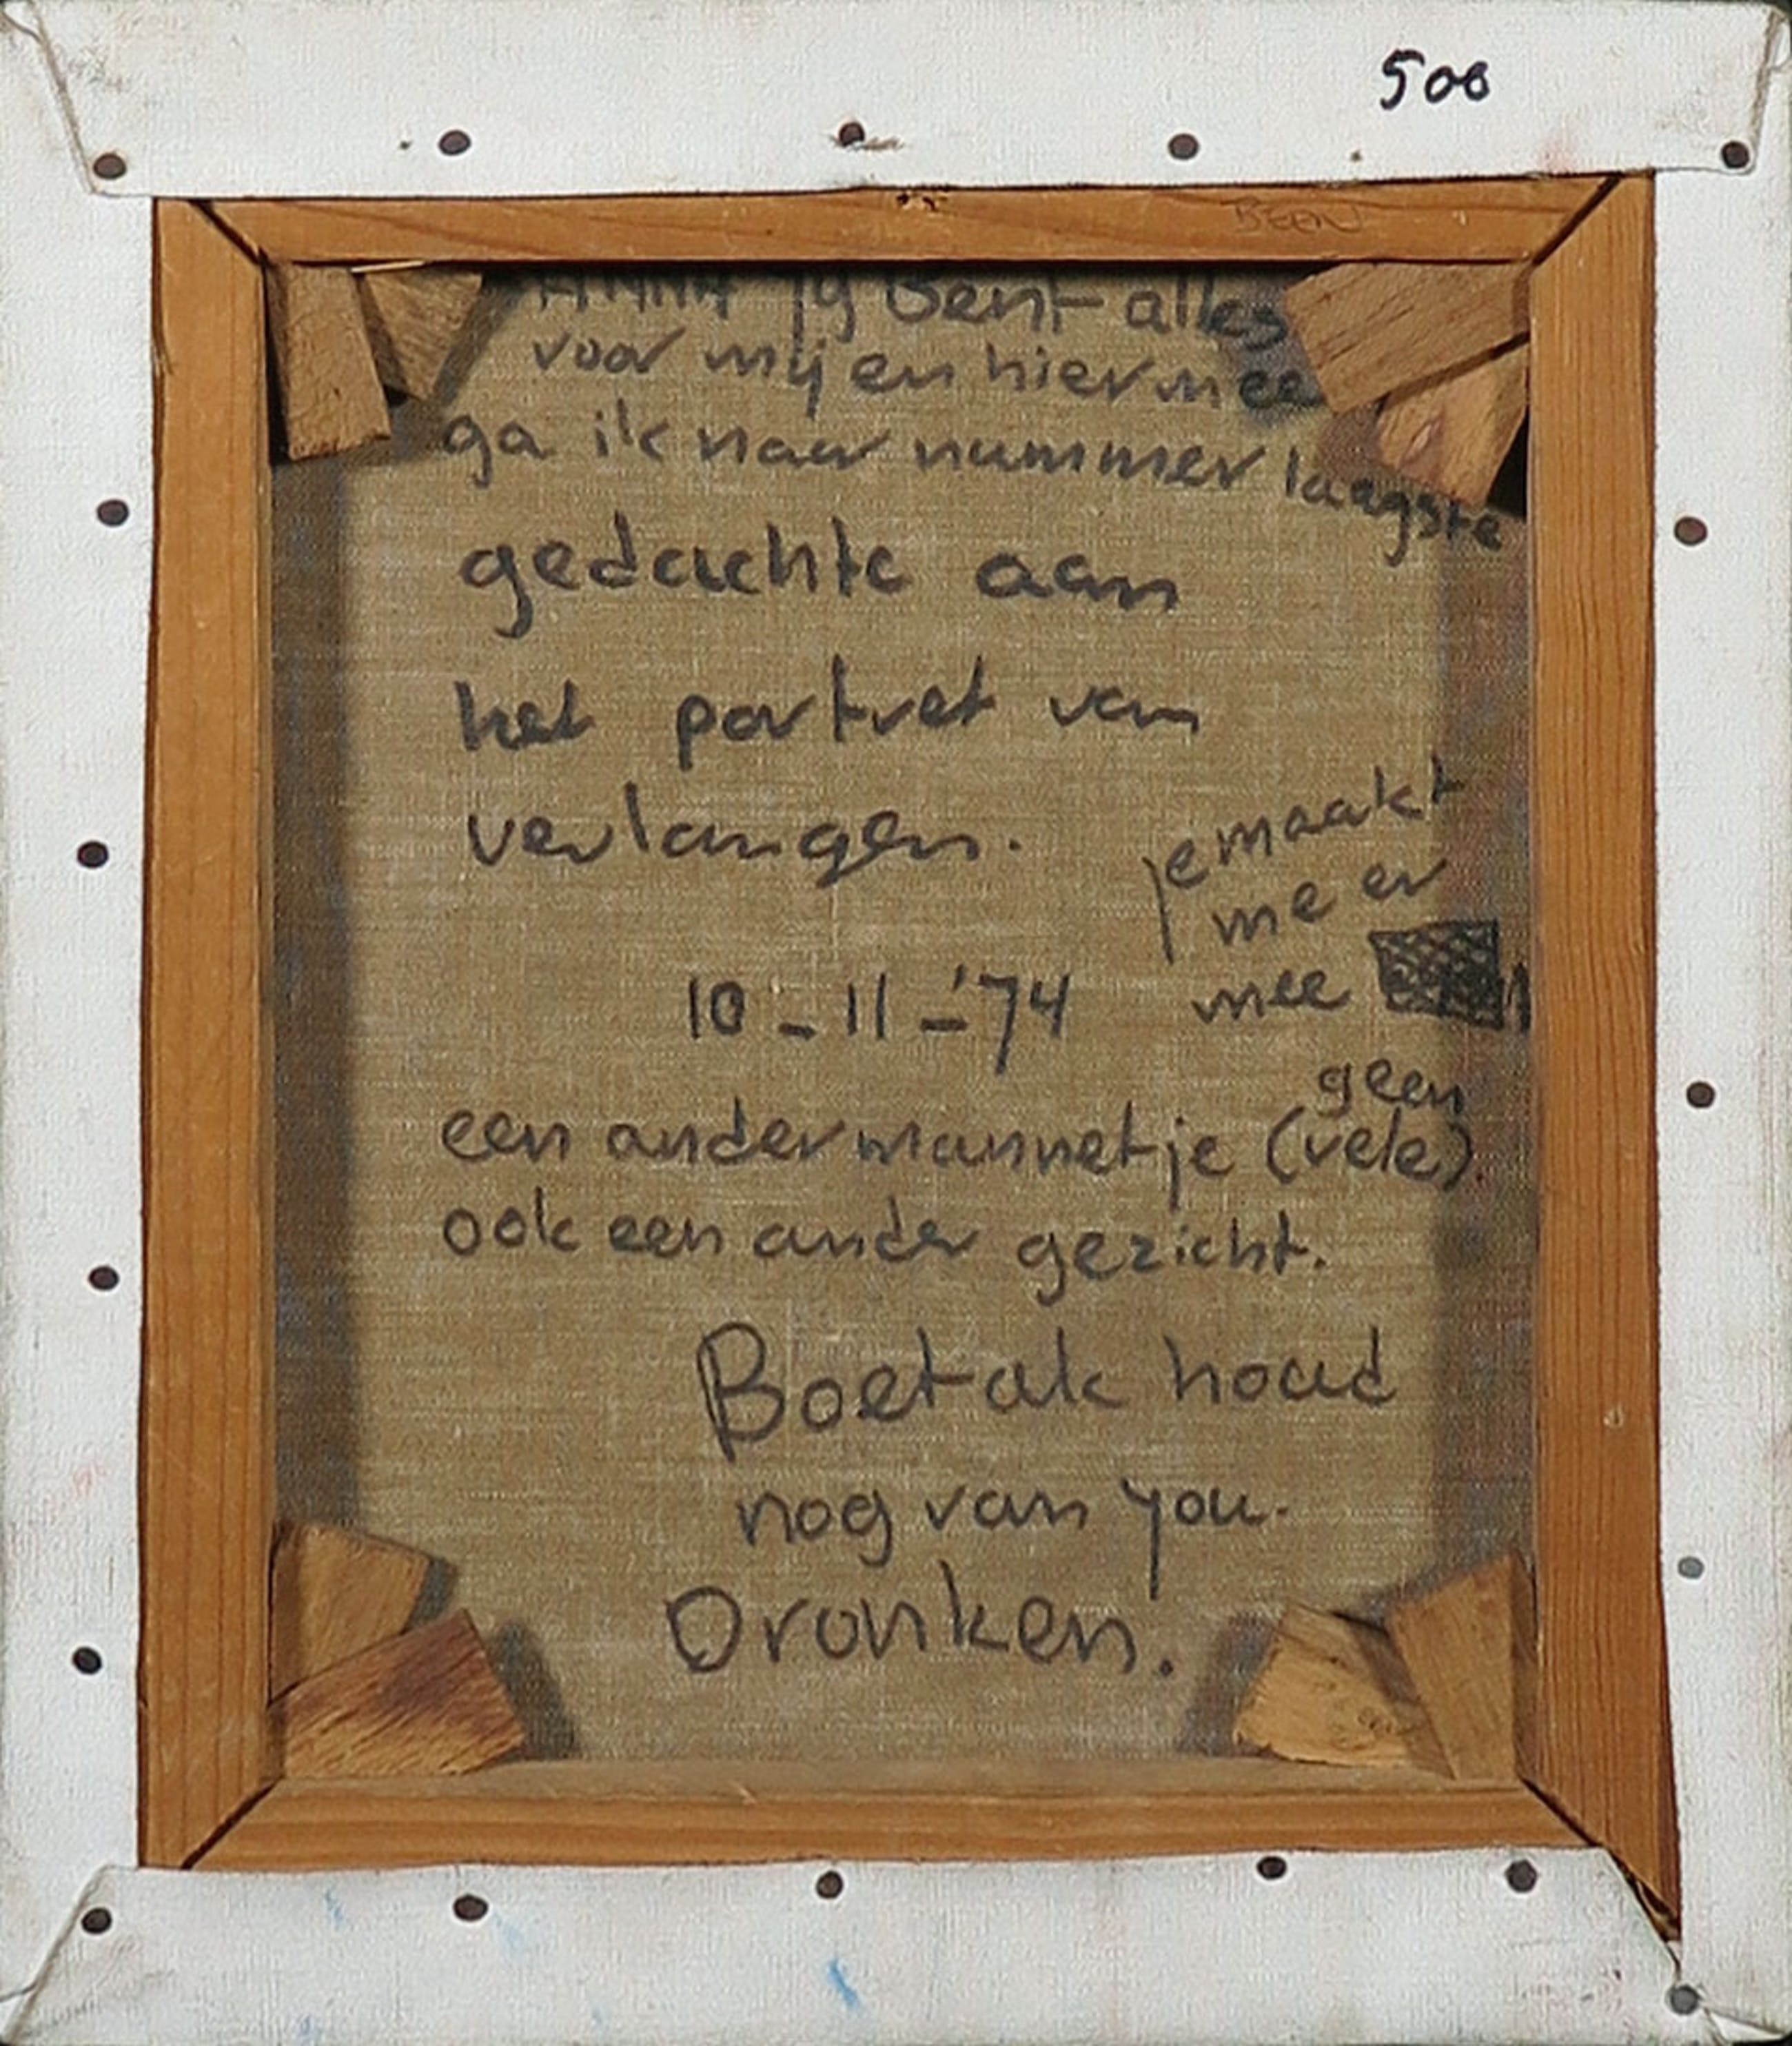 500
BEEN
ANNA Jÿ Bent alles
voor mij en hiermee
ga ik naar nummer laagste
gedachte aan
het portret van
verlangen.
je maakt
me er
mee
10-11-'74
geen
een ander mannetje (vele)
ook een ander gezicht.
Boetak houd
nog van you.
Dronken.